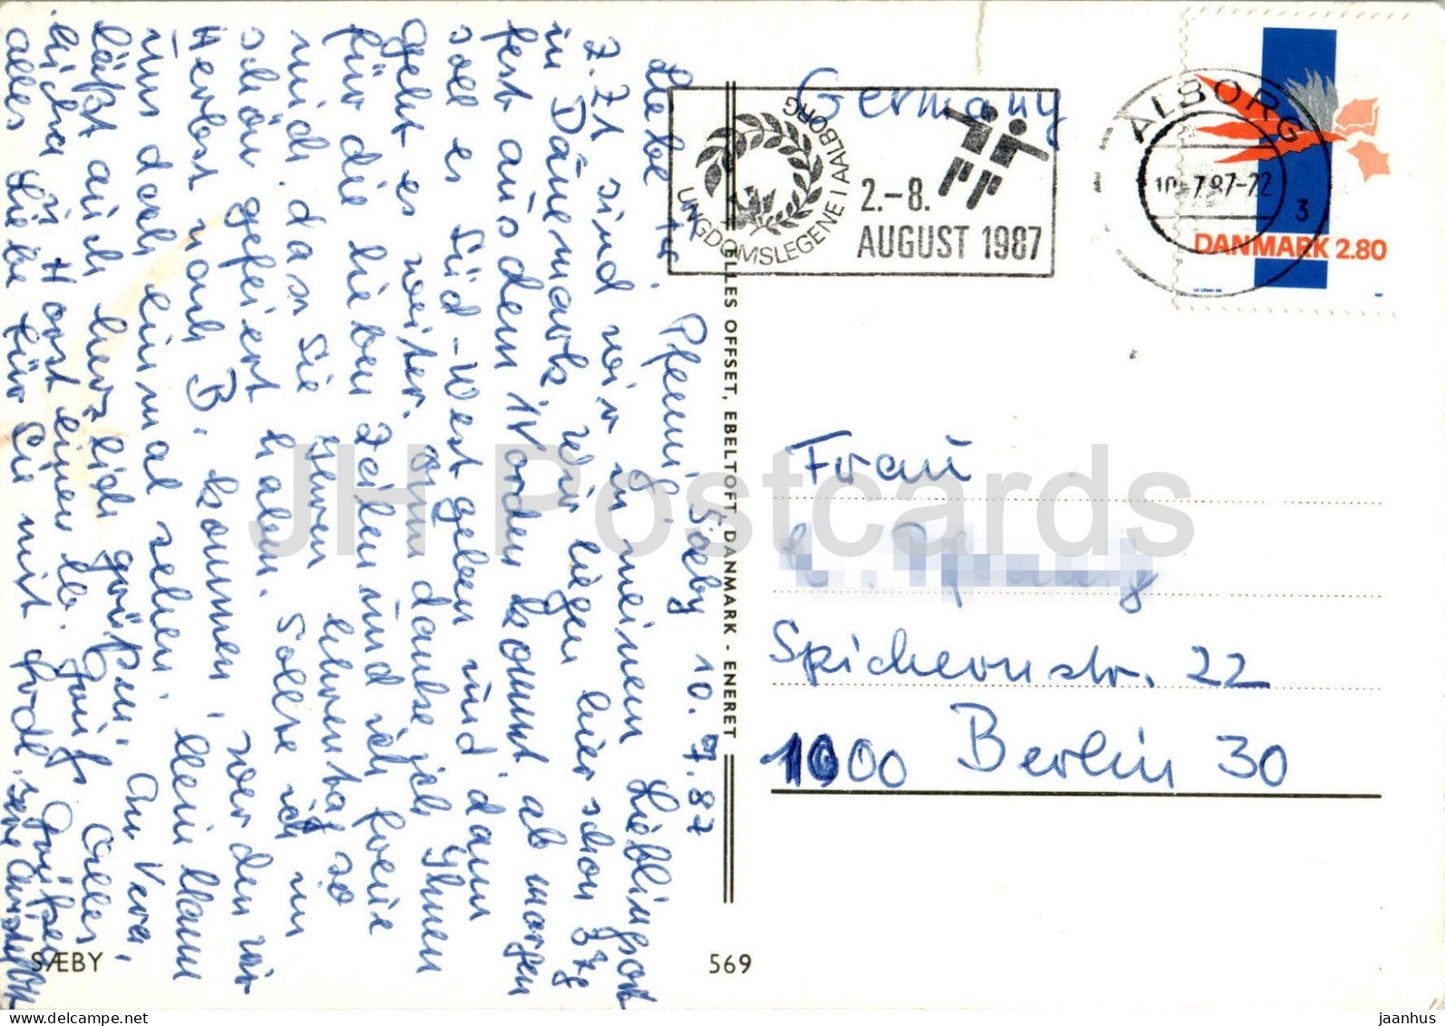 Liebe Fr. Pfennig! Saeby 10.7.87
Z.Zt sind wir in meinem Lieblingsort
in Dänemark. Wir liegen hier schon
fest aus dem Norden kommt. ab morgen
soll es Süd-West geben und dann
geht es weiter. nun danke ich Ihnen
für die lieben Zeilen und ich freue
mich, dass Sie Ihren Ehrentag so
schön gefeiert haben. Sollte ich im
Herbst nach B. kommen, werden wir
uns doch einmal sehen. Mein Mann
läßt auch herzlich grüßen. An Vera,
u Horst einen lb. Gruß. Alles,
alles Liebe für Sie mit
Germany
UNGDOMSLEGENE I AALBORG
2.-8.
AUGUST 1987
ALBORG
10-7.87-22
3
DANMARK 2.80
ELLES OFFSET, EBELTOFT, DANMARK - ENERET
Frau
Spichernstr. 22
1000 Berlin 30
SÆBY
569
JH Postcards
jaanhus